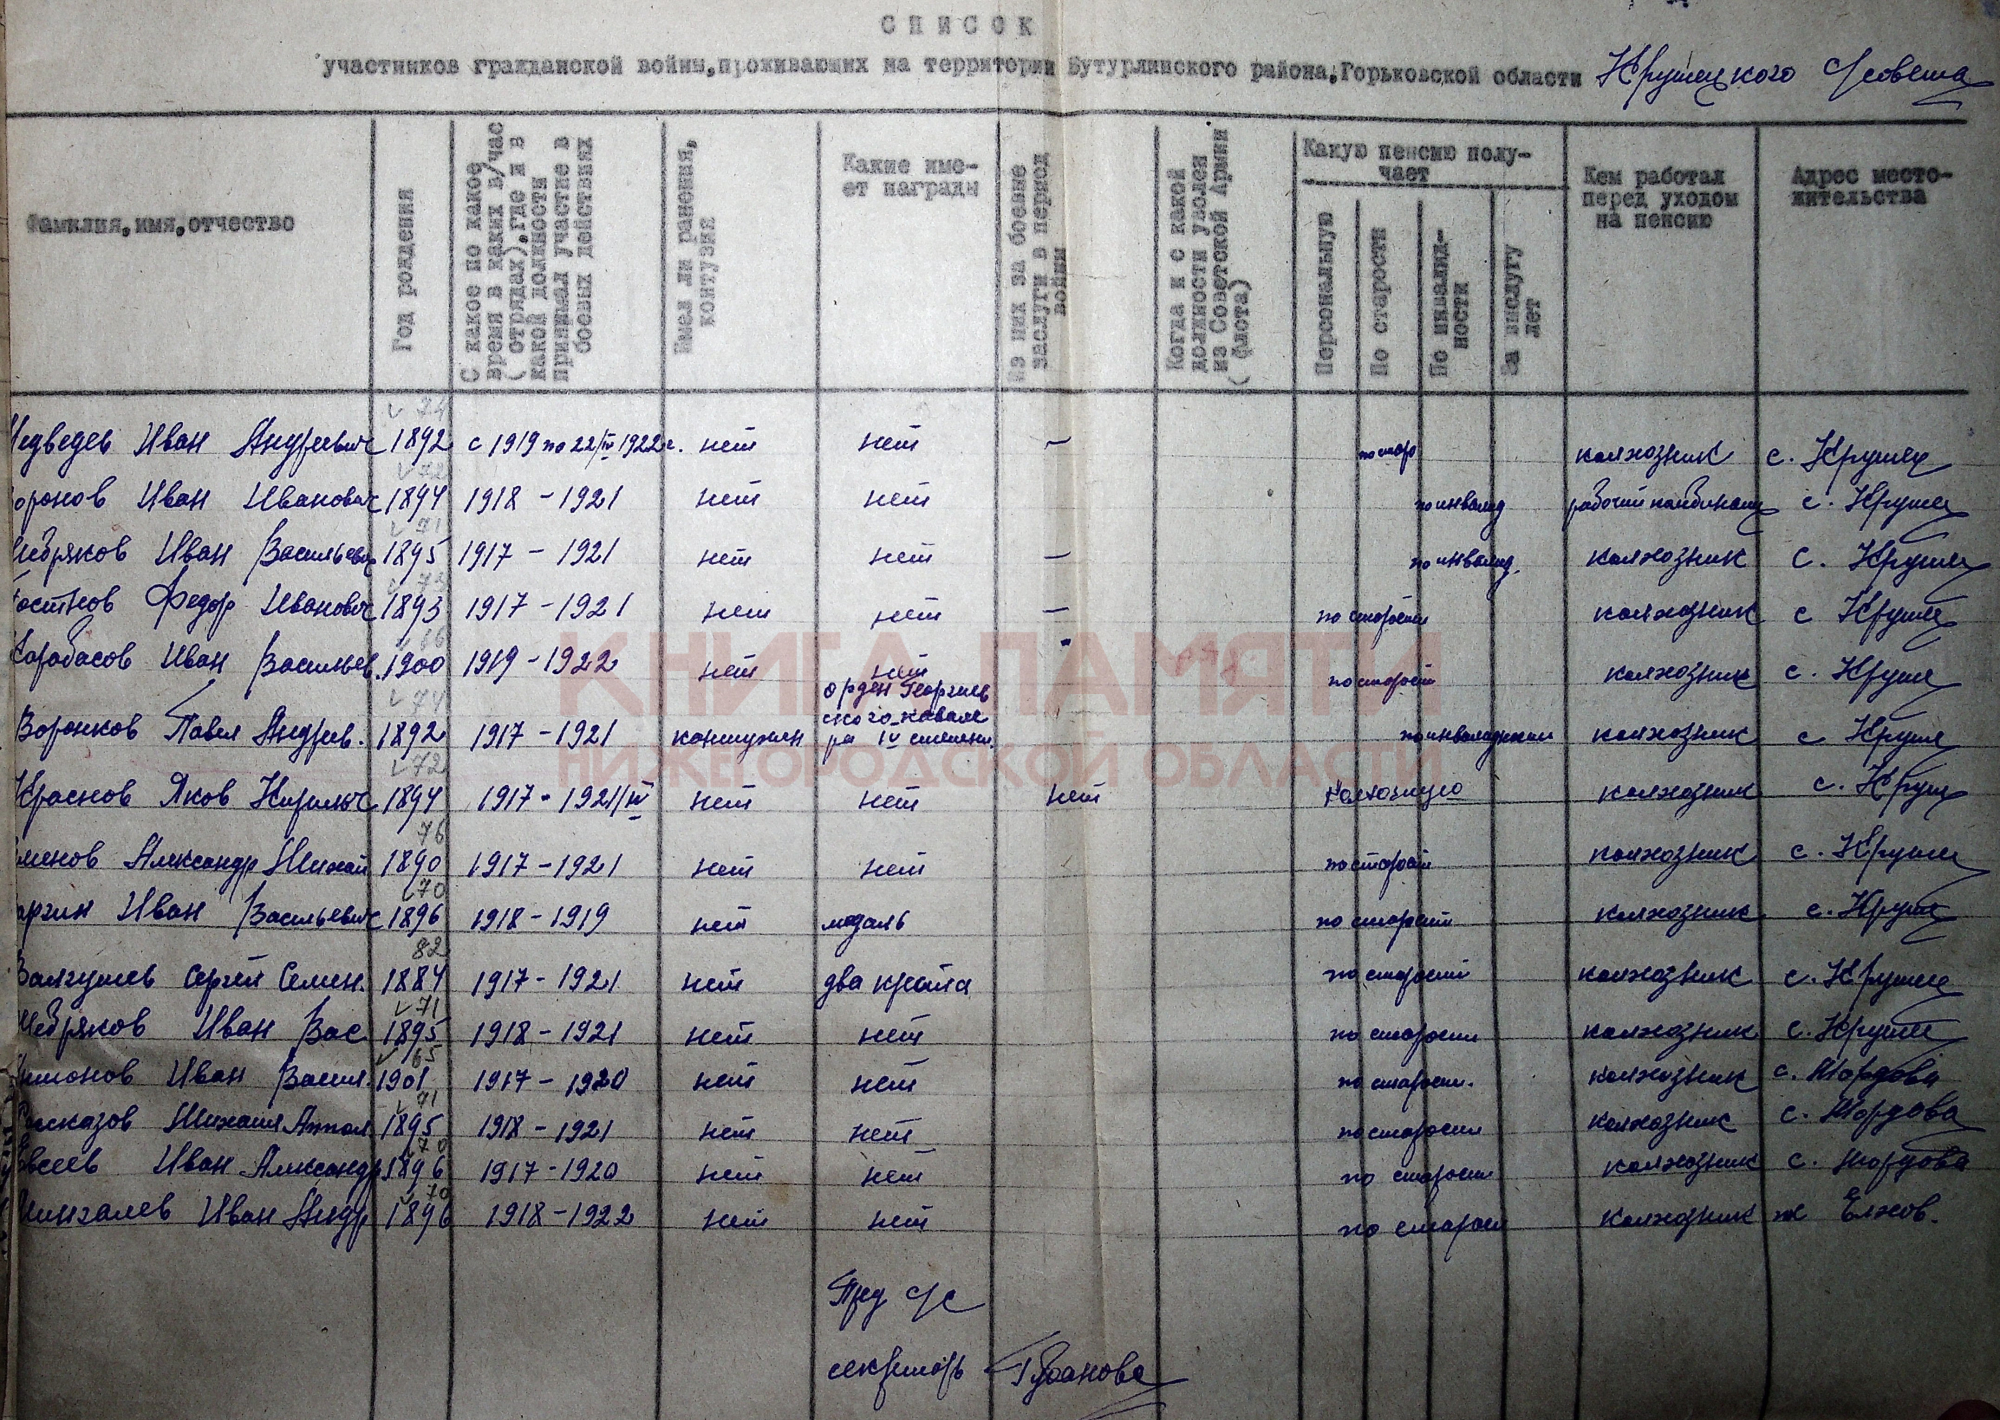 СПИСОК
участников гражданской войны,проживающих на территории Бутурлинского района,Горьковской области Крушецкого с/совета
Фамилия,имя,отчество
Год рождения
С какое по какое
время в каких в/час
(отрядах),где и в
какой должности
принимал участие в
боевых действиях
Имел ли ранения,
контузия
Какие име-
ет награды
Из них за боевые
заслуги в период
войны
Когда и с какой
должности уволен
из Советской Армии
(флота)
Какую пенсию полу-
чает
Персональную
По старости
По инвалид-
ности
За выслугу
лет
Кем работал
перед уходом
на пенсию
Адрес место-
жительства
74
Медведев Иван Андреевич 1892 с 1919 по 22/IV 1922 г. нет нет – по стар колхозник с. Крушец
72
Воронов Иван Иванович 1894 1918 - 1921 нет нет по инвалид рабочий с. Крушец
71
Шебряков Иван Васильевич 1895 1917 - 1921 нет нет – по инвалид. колхозник с. Крушец
73
Федор Иванович 1893 1917 - 1921 нет нет – по старости колхозник с Крушец
66
Карабасов Иван Васильев. 1900 1919 - 1922 нет нет по старости колхозник с. Крушец
74
Воронков Павел Андрев. 1892 1917 - 1921 контужен орден Георгиев
ского кавале
ра IV степени. по инвалидности колхозник с Крушец
72
Краснов Яков Кирилыч 1894 1917 - 1921/IV нет нет нет колхозную колхозник с. Крушец
76
Александр Михай 1890 1917 - 1921 нет нет по старости колхозник с. Крушец
70
Иван Васильевич 1896 1918 - 1919 нет медаль по старости колхозник с. Крушец
82
Валгушев Сергей Семен. 1884 1917 - 1921 нет два креста по старости колхозник с. Крушец
71
Шебряков Иван Вас 1895 1918 - 1921 нет нет по старости колхозник с. Крушец
65
Иван Васил. 1901 1917 - 1920 нет нет по старости. колхозник с. Мордова
71
Рассказов Михаил 1895 1918 - 1921 нет нет по старости колхозник с. Мордова
70
Евсеев Иван Александр 1896 1917 - 1920 нет нет по старости колхозник с. Мордова
70
Мингалев Иван Андр 1896 1918 - 1922 нет нет по старости колхозник Елхов.
Пред с/с
секретарь Губанова
КНИГА ПАМЯТИ
НИЖЕГОРОДСКОЙ ОБЛАСТИ